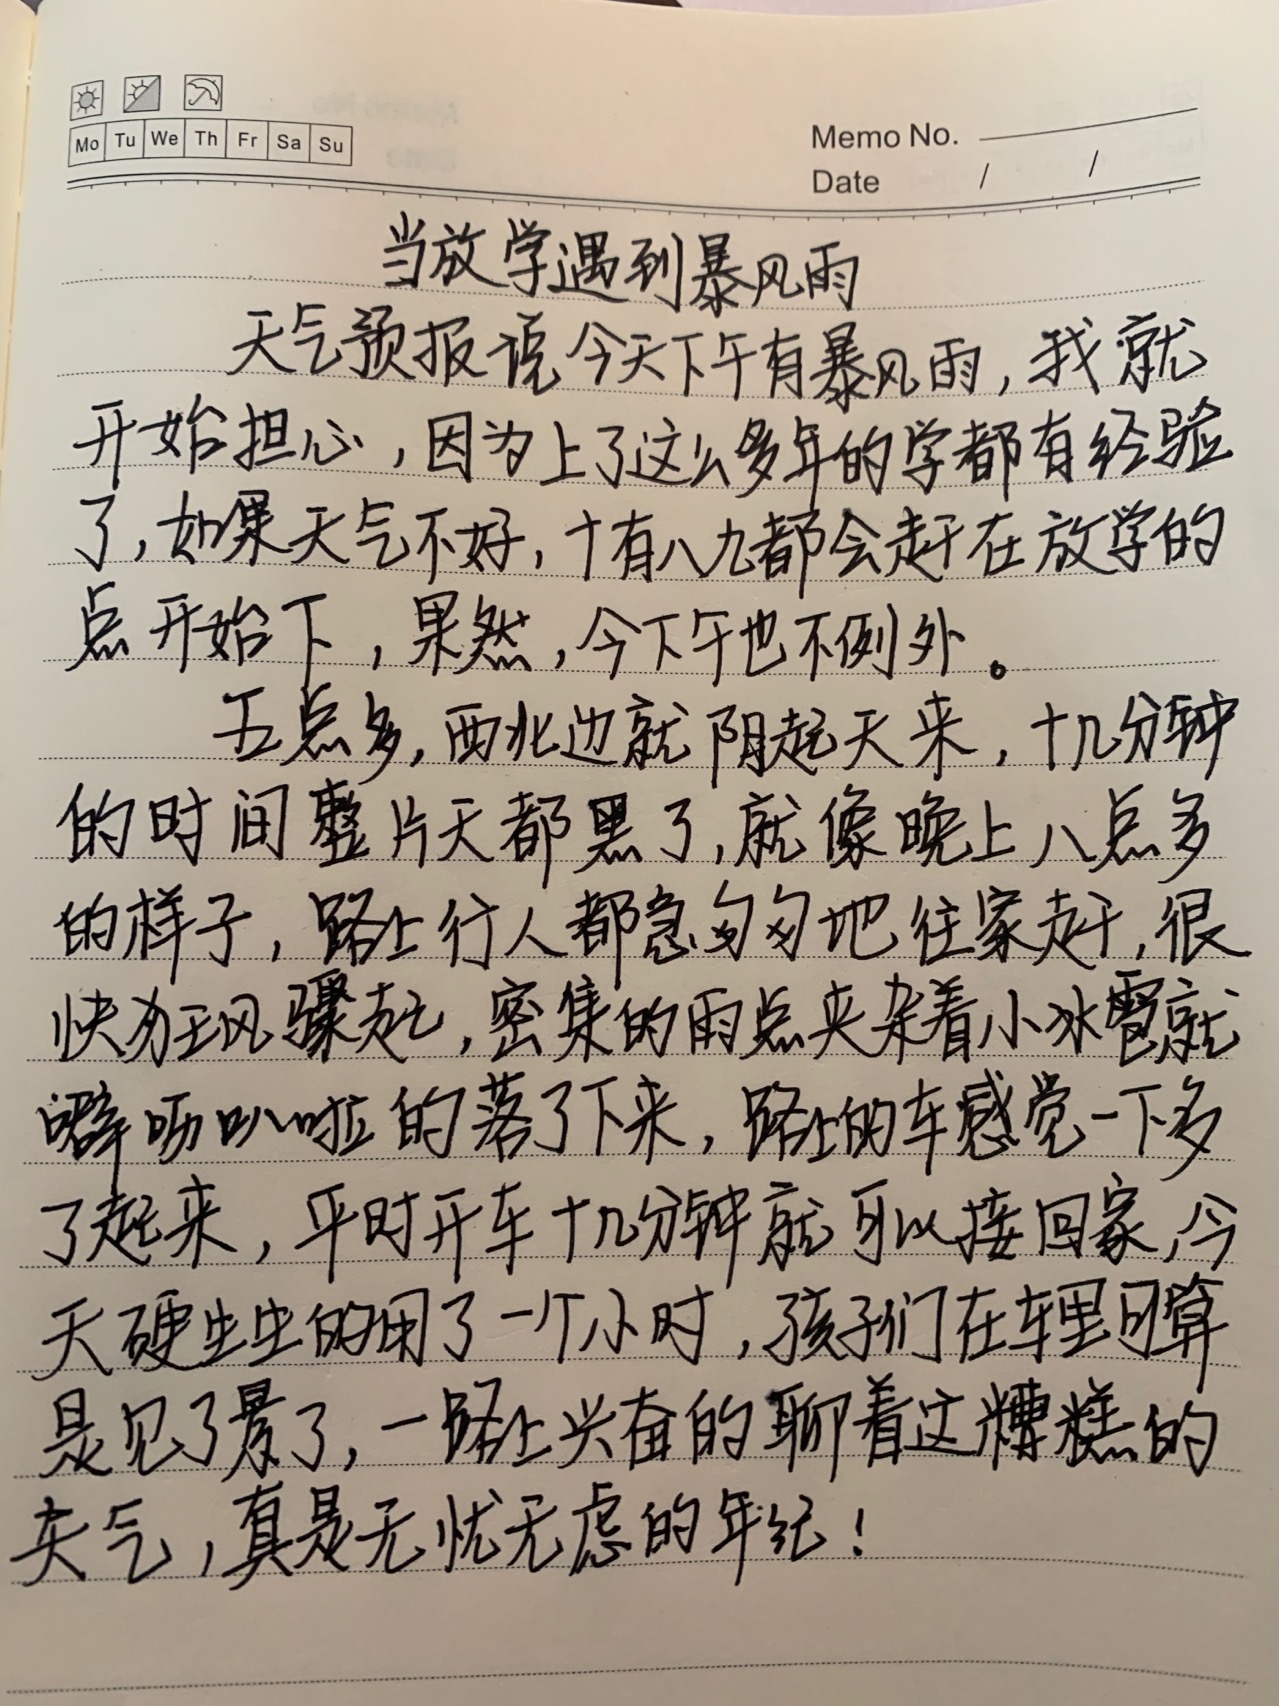 Mo Tu We Th Fr Sa Su
Memo No.
Date / /
当放学遇到暴风雨
天气预报说今天下午有暴风雨，我就
开始担心，因为上了这么多年的学都有经验
了，如果天气不好，十有八九都会赶在放学的
点开始下，果然，今下午也不例外。
五点多，西北边就阴起天来，十几分钟
的时间整片天都黑了，就像晚上八点多
的样子，路上行人都急匆匆地往家赶，很
快狂风骤起，密集的雨点夹杂着小冰雹就
噼呖叭啦的落了下来，路上的车感觉一下多
了起来，平时开车十几分钟就可以接回家，今
天硬生生的用了一个小时，孩子们在车里可算
是见了景了，一路上兴奋的聊着这糟糕的
天气，真是无忧无虑的年纪！